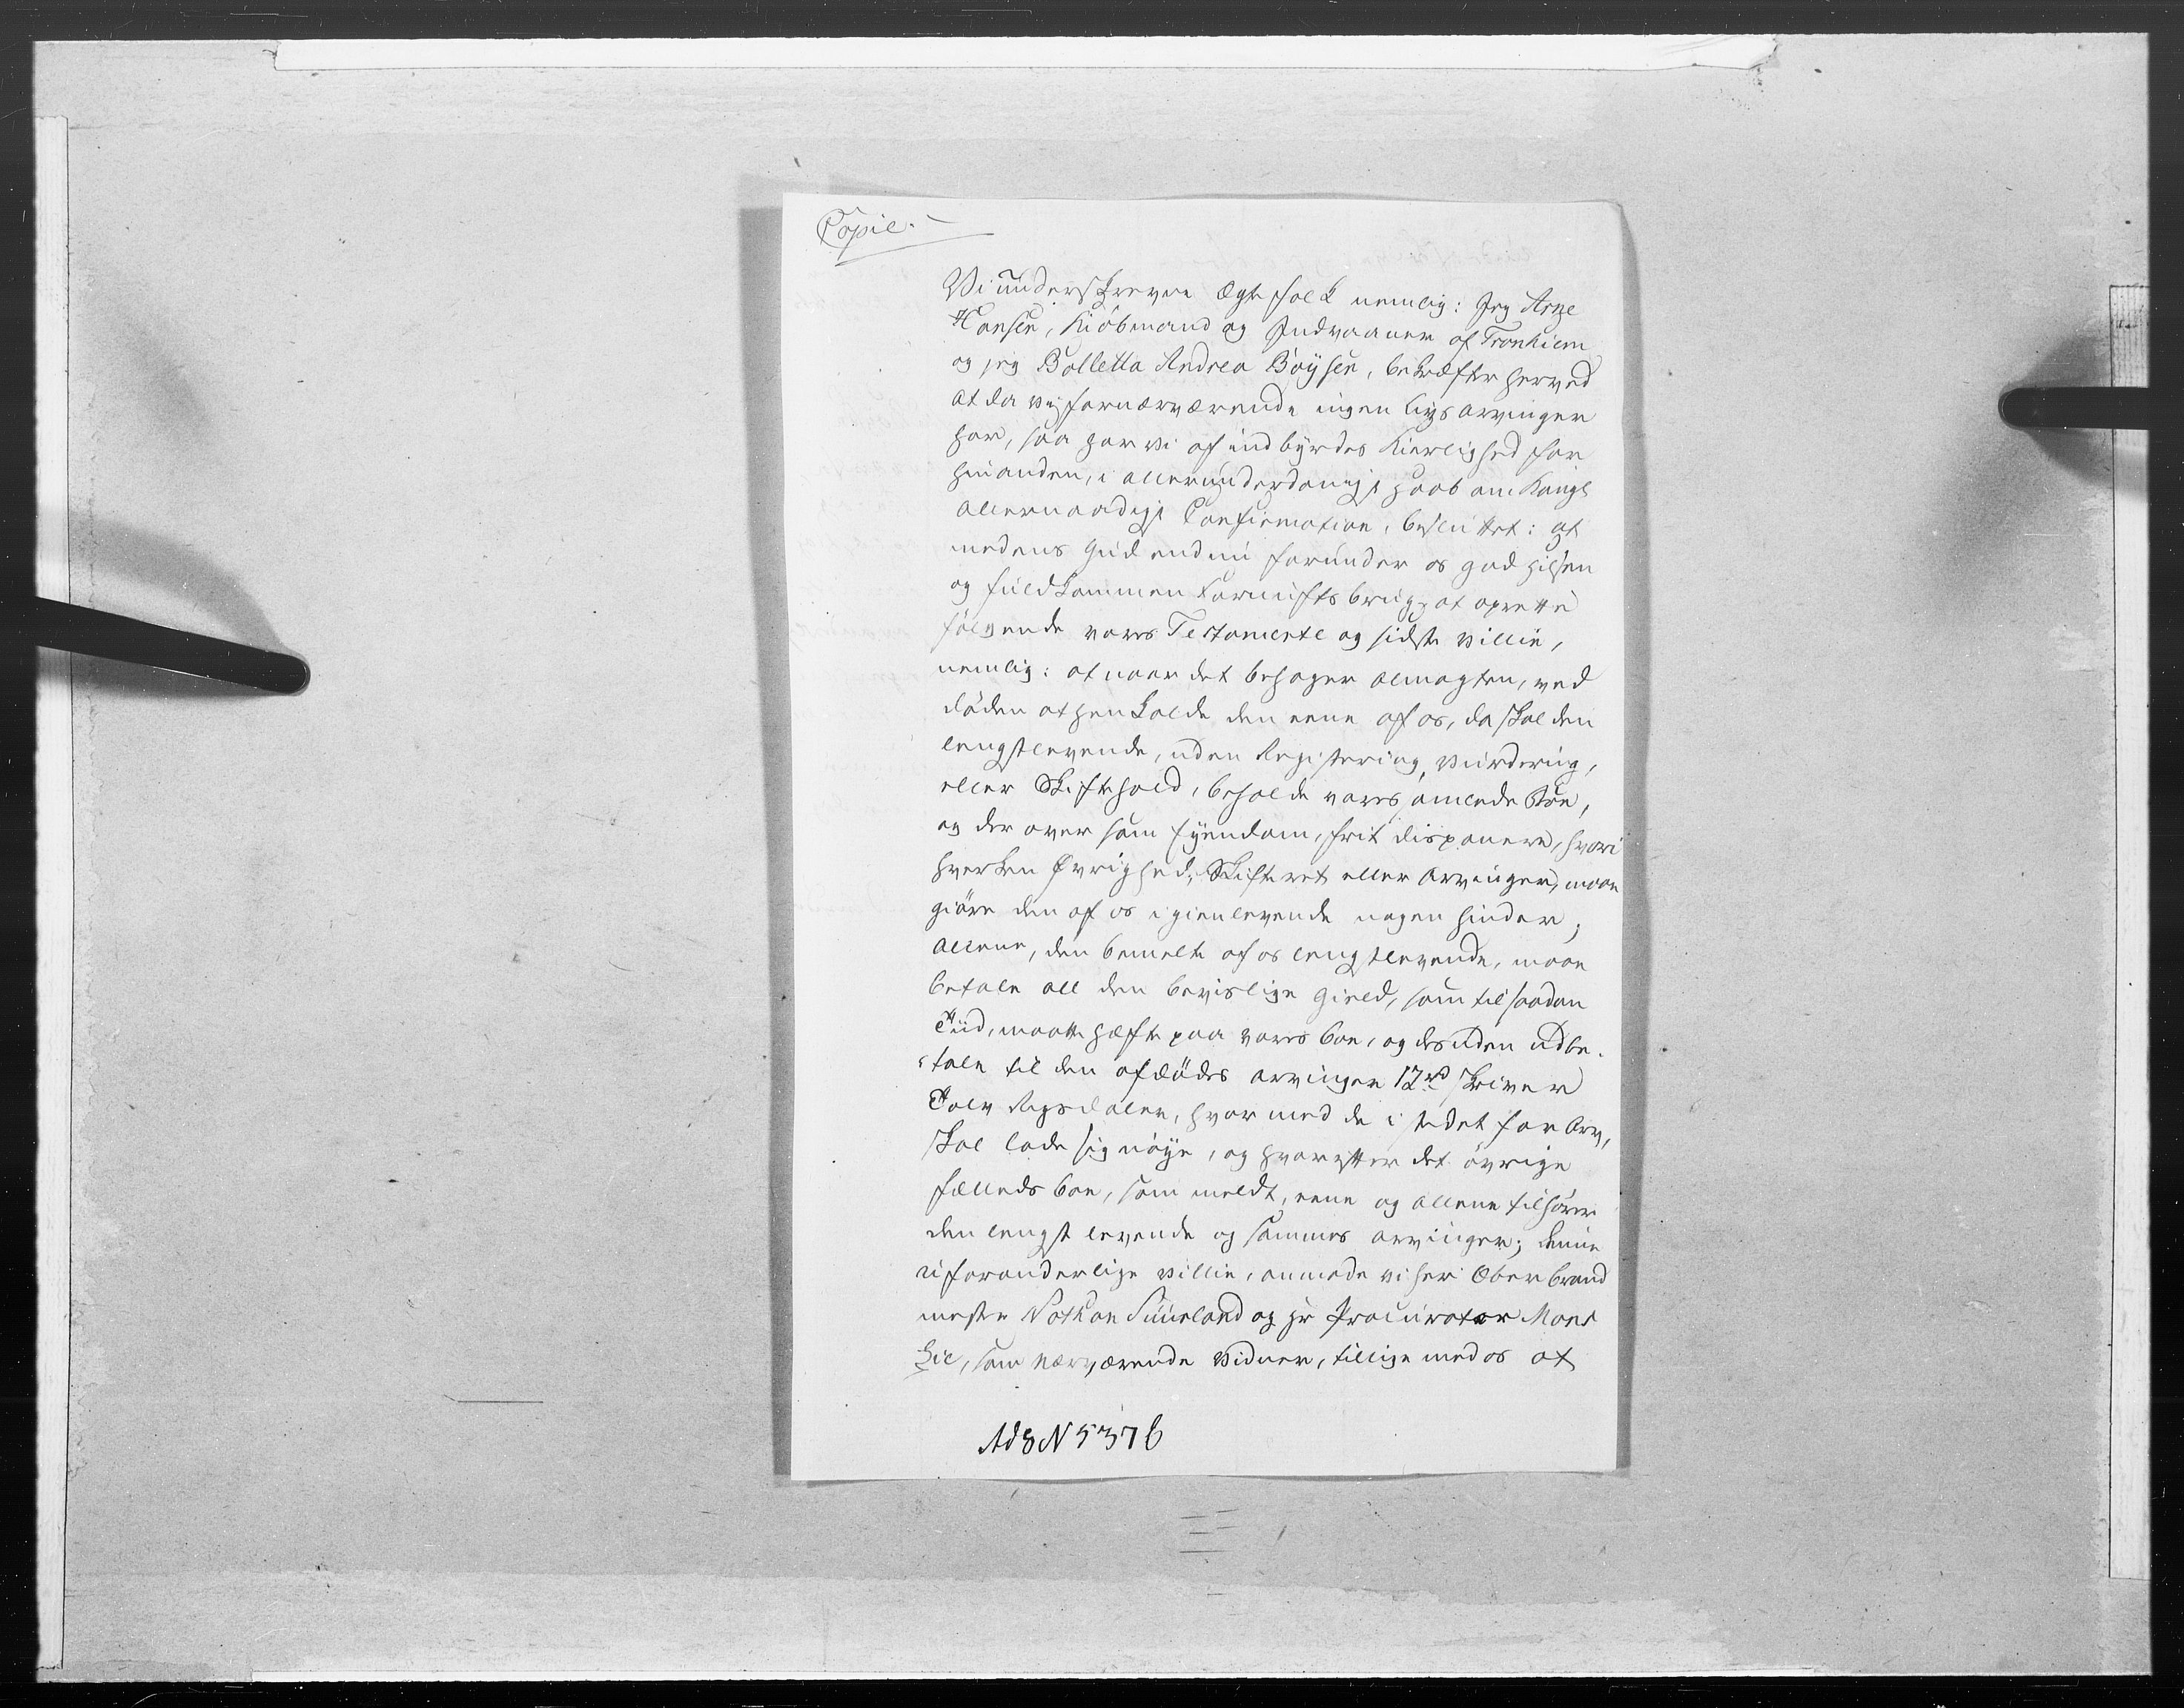 Copie.
Vi underskrevne Ægte folk nemlig: Jeg Arne
Hansen, Kiöbmand og Indvaaner af Tronhiem
og jeg Bolletta Andrea Boÿsen, bekræfter herved
at da vi fornærværende ingen livs arvinger
har, saa har vi af indbÿrdes Kierlighed for
hinanden, i allerunderdanigst haab om Kongl
allernaadigst Confirmation, besluttet: at
medens Gud endnu forunder os god hilsen
og fuldkommen Fornufts brug, at oprette
følgende vores Testamente og sidste villie,
nemlig: at naar det behager almagten, ved
döden at henkalde den eene af os, da skal den
lengstlevende, uden Registering, Vurdering,
eller Skiftehold, beholde vores samlede Boe,
og der over som Eÿendom, frit disponere, hvori
hverken Övrighed, Skifteret eller Arvinger, maae
giöre den af os igienlevende nogen hinder;
allene, den bemelte af os lengstlevende, maae
betale all den bevislige Gield, som til saadan
Tiid, maatte hæfte paa vores boe, og desuden udbe-
tale til den afdödes arvinger 12 rd skriver
Tolv Rigsdaler, hvormed de i stedet for Arv,
skal lade sig nöÿe, og hvorefter det övrige
fælleds boe, som meldt, eene og allene tilhörer
den lengst levende og sammes arvinger; denne
uforanderlige villie, anmode vi herr Ober brand
mester Nathan Suurland og hr Procurator Mons
Lie, som nærværende Vidner, tillige med os at
Ad 8 N 5376